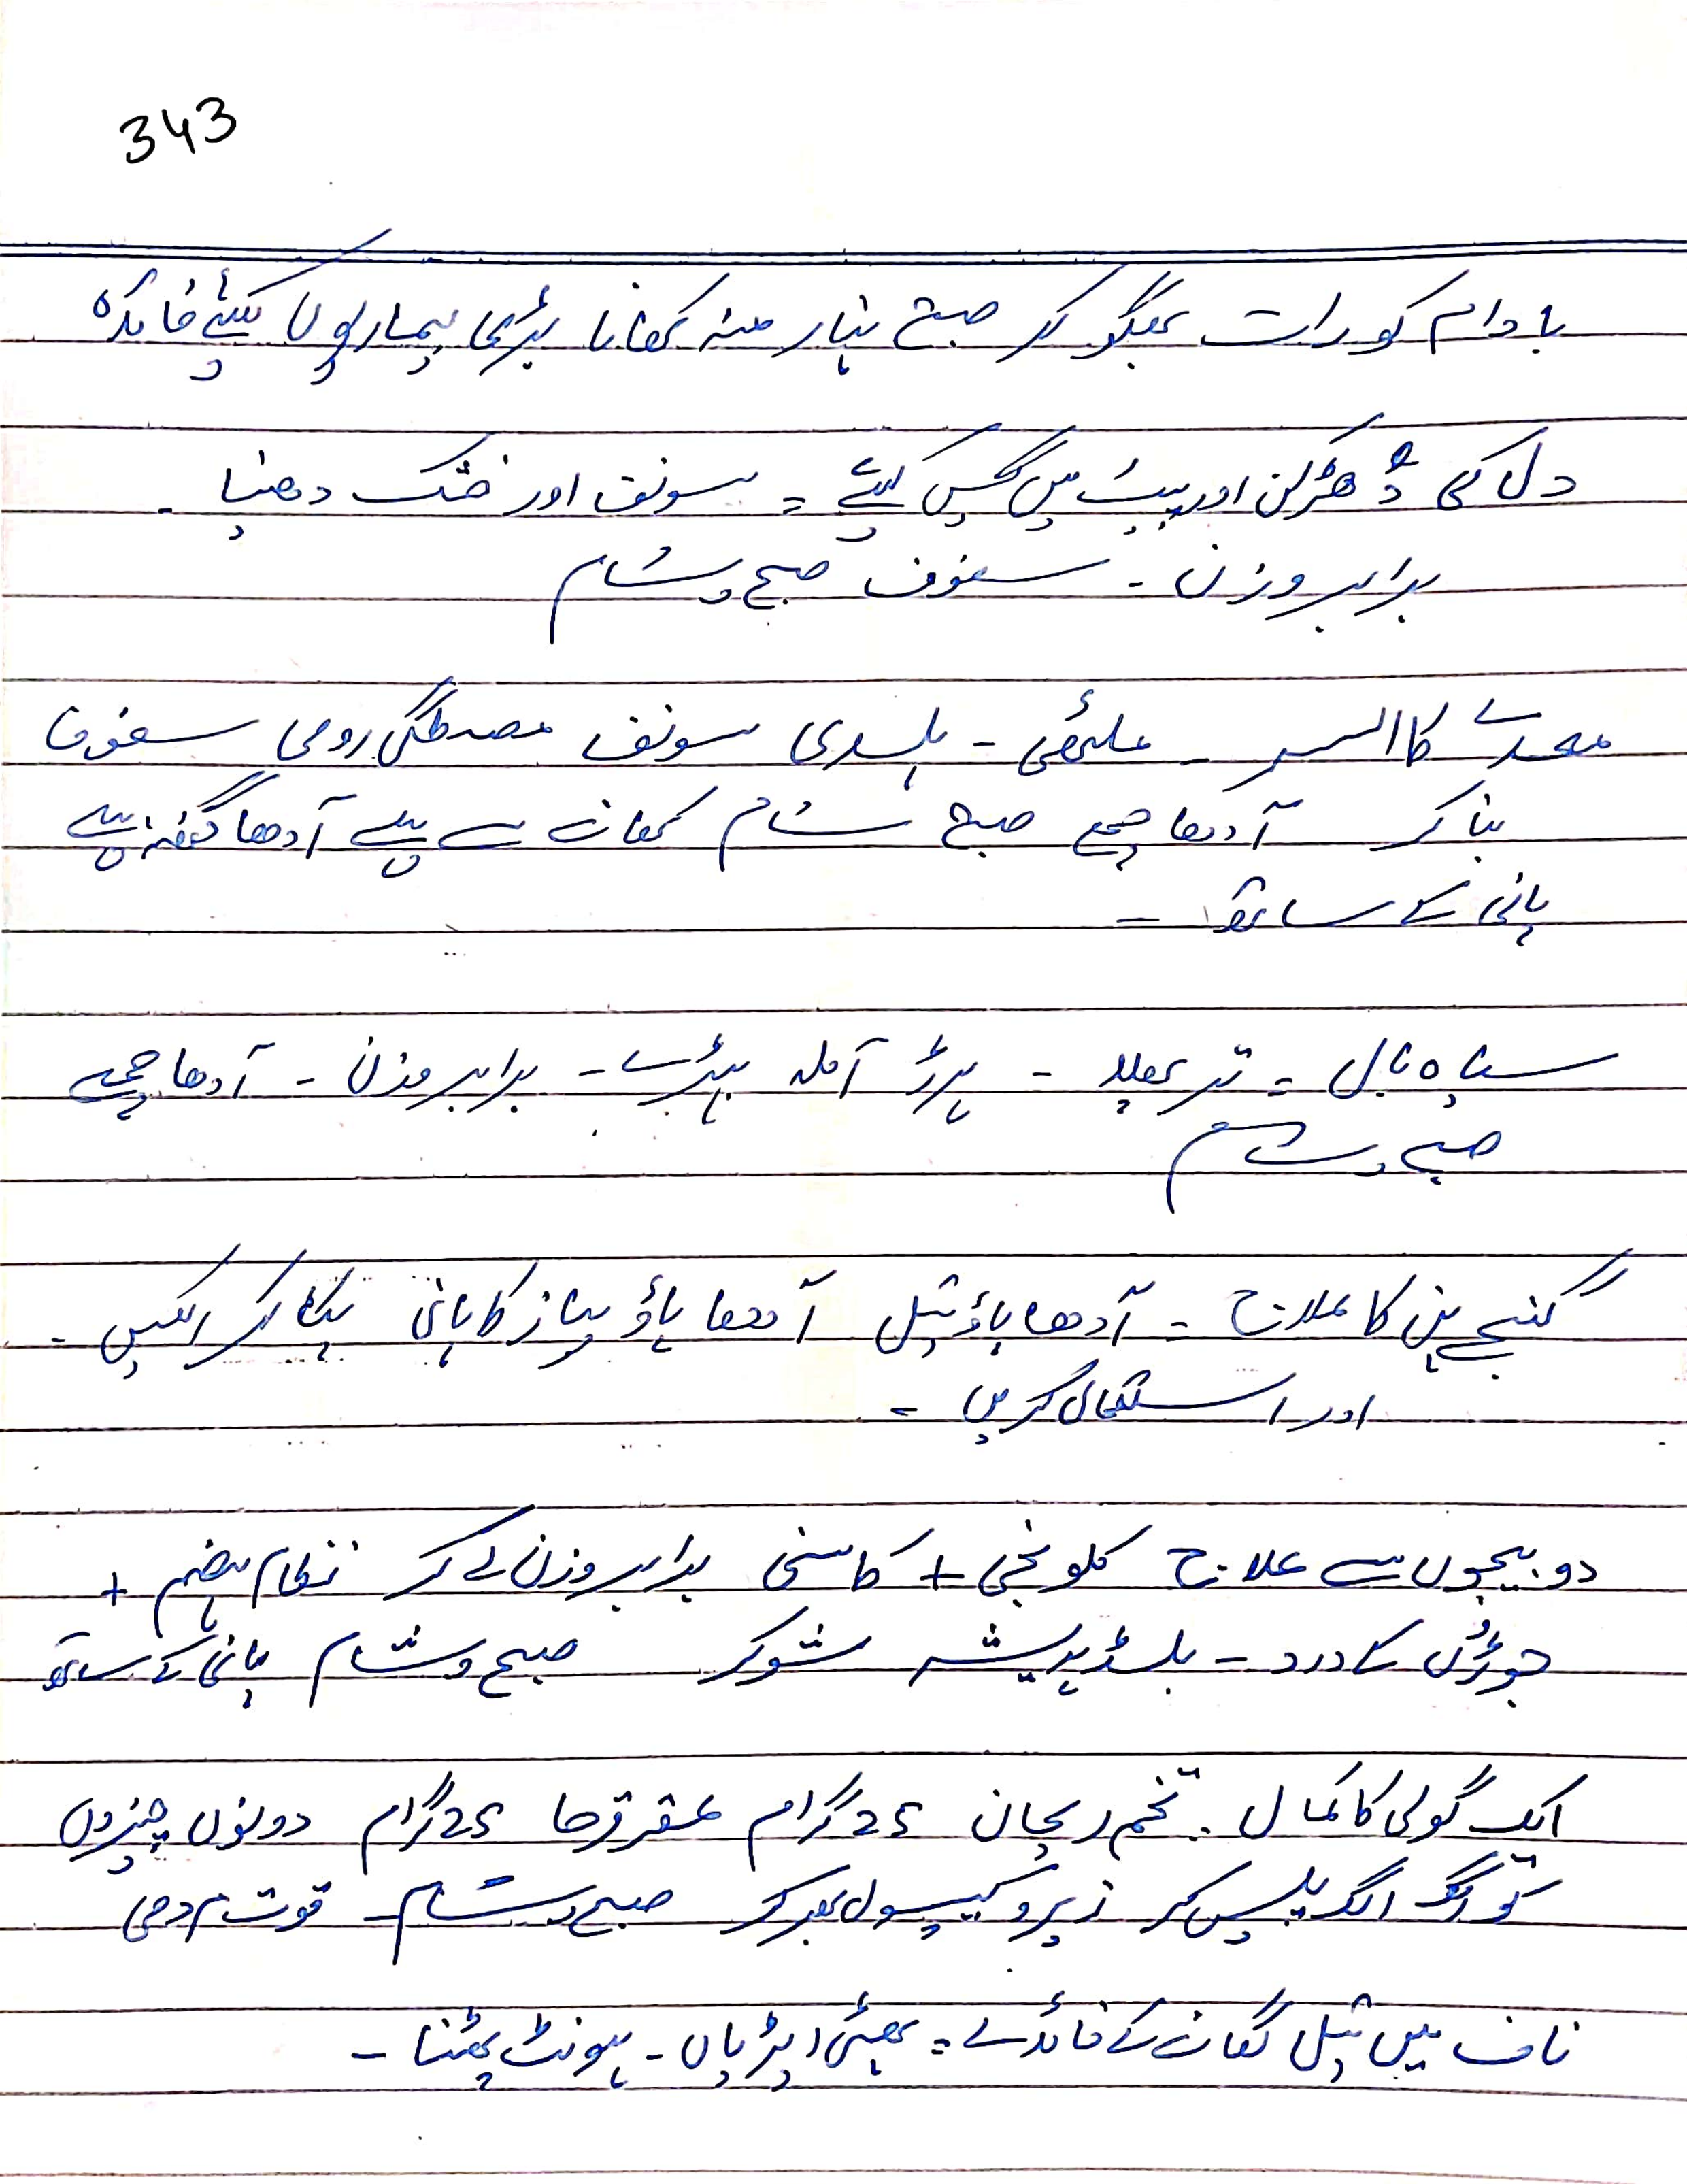 343
بادام کو رات بھگو کر صبح نہار منہ کھانا بڑی بیماریوں کیلئے فائدہ
دل کی دھڑکن اور پیٹ میں گیس کیلئے = سونف اور خشک دھنیا -
برابر وزن - سفوف صبح و شام
معدے کا السر - ملٹھی - ہلدی سونف مصطگی رومی سفوف
بنا کر آدھا چمچ صبح شام کھانے سے پہلے آدھا گھنٹہ پہلے
پانی کے ساتھ -
سیاہ بال = تر پھلہ - ہرڑ آملہ بہیڑے - برابر وزن - آدھا چمچ
صبح و شام
گنجے پن کا علاج - آدھا پاؤ تیل آدھا پاؤ پیاز کا پانی پکا کر رکھیں -
اور استعمال کریں -
دو بیجوں سے علاج کلونجی + کاسنی برابر وزن لے کر نظام ہضم +
جوڑوں کے درد - بلڈ پریشر شوگر صبح و شام پانی کے ساتھ
ایک گولی کا کمال - تخم ریحان 25 گرام عقرقرحا 25 گرام دونوں چیزوں
کو الگ الگ پیس کر زیرو کیپسول بھر کر صبح و شام - قوت مردمی
ناف میں تیل لگانے کے فائدے = پھٹی ایڑیاں - ہونٹ پھٹنا -